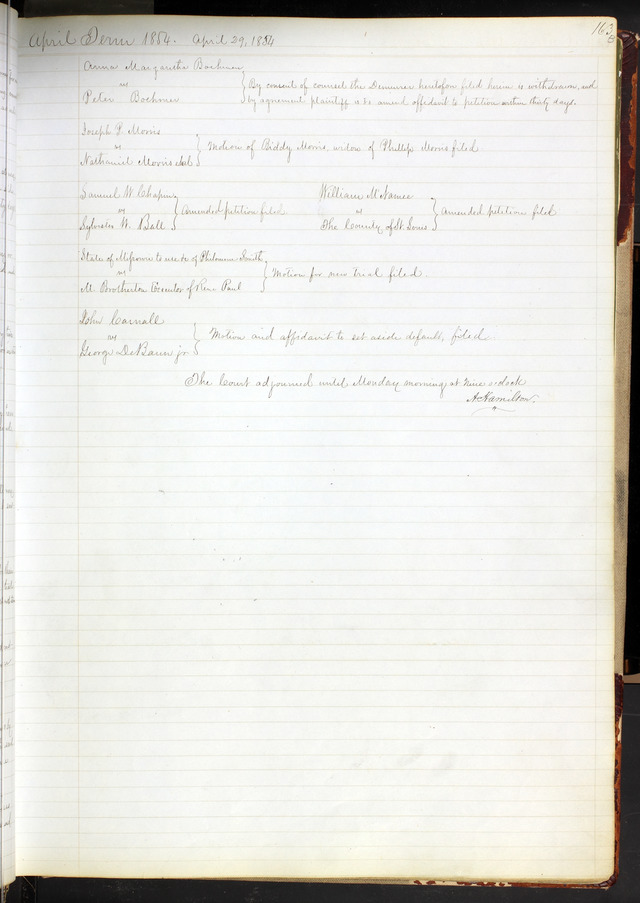 163
April Term 1854. April 29, 1854
Anna Margaretha Bochmer
vs
Peter Bochmer
By consent of counsel the Demurrer heretofore filed herein is withdrawn, and
by agreement plaintiff is to amend affidavit to petition within thirty days.
Joseph P. Morris
vs
Nathaniel Morris et al.
Motion of Biddy Morris, widow of Phillip Morris filed
Samuel W. Chapin
vs
Sylvester W. Ball
Amended petition filed
William McNamee
vs
The County of St Louis.
Amended petition filed
State of Missouri to use &c of Philomene Smith
vs
M. Brotherton Executor of Rene Paul
Motion for new trial filed.
John Carnall
vs
George DeBaun jr.
Motion and affidavit to set aside default, filed.
The Court adjourned until Monday morning at nine o'clock
A. Hamilton.